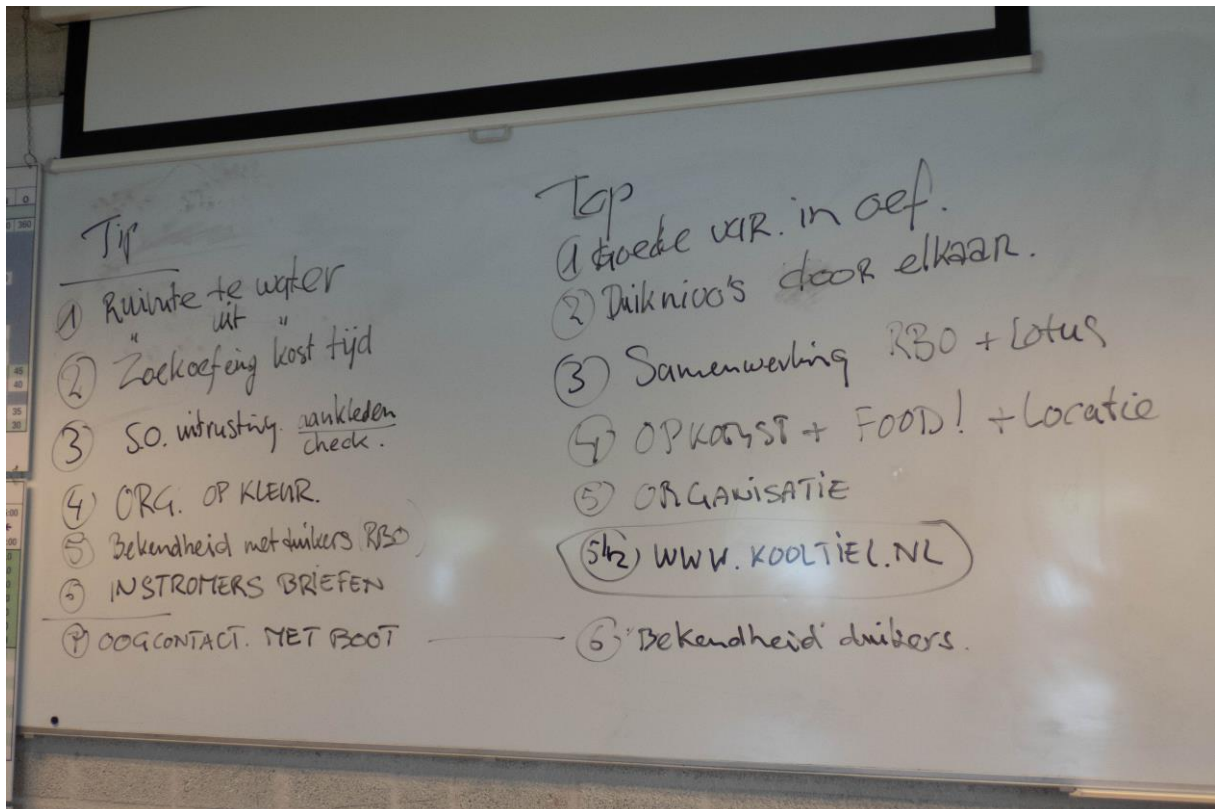 Tip
① Ruimte te water
" uit "
② Zoekoefeing kost tijd
③ S.O. uitrusting. aankleden
check.
④ ORG. OP KLEUR.
⑤ Bekendheid met duikers (RBO)
⑥ INSTROMERS BRIEFEN
⑦ OOGCONTACT. MET BOOT
Top
① Goede VAR. in oef.
② Duiknivo's door elkaar.
③ Samenwerking RBO + Lotus
④ OPKOMST + FOOD! + Locatie
⑤ ORGANISATIE
5½ WWW.KOOLTIEL.NL
⑥ "Bekendheid" duikers.
45
40
35
30